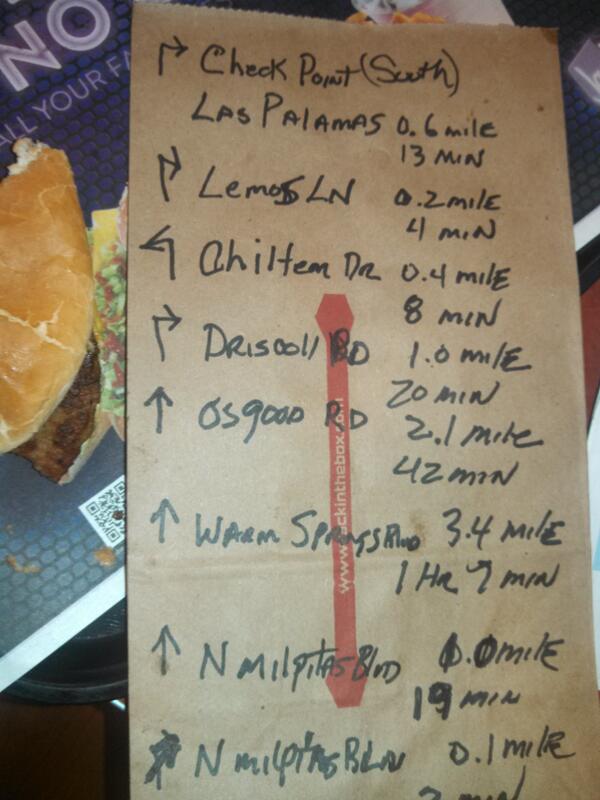 NO
ALL YOUR F
↱ Check Point (South)
Las Palamas 0.6 mile
13 min
↱ Lemos LN 0.2 mile
4 min
↰ Chiltern Dr 0.4 mile
8 min
↱ Driscoll RD 1.0 mile
20 min
↑ Osgood RD 2.1 mile
42 min
↑ Warm Springs Blvd 3.4 mile
1 Hr 7 min
↑ N milpitas Blvd 0.0 mile
19 min
N milpitas 0.1 mile
min
www.jackinthebox.com